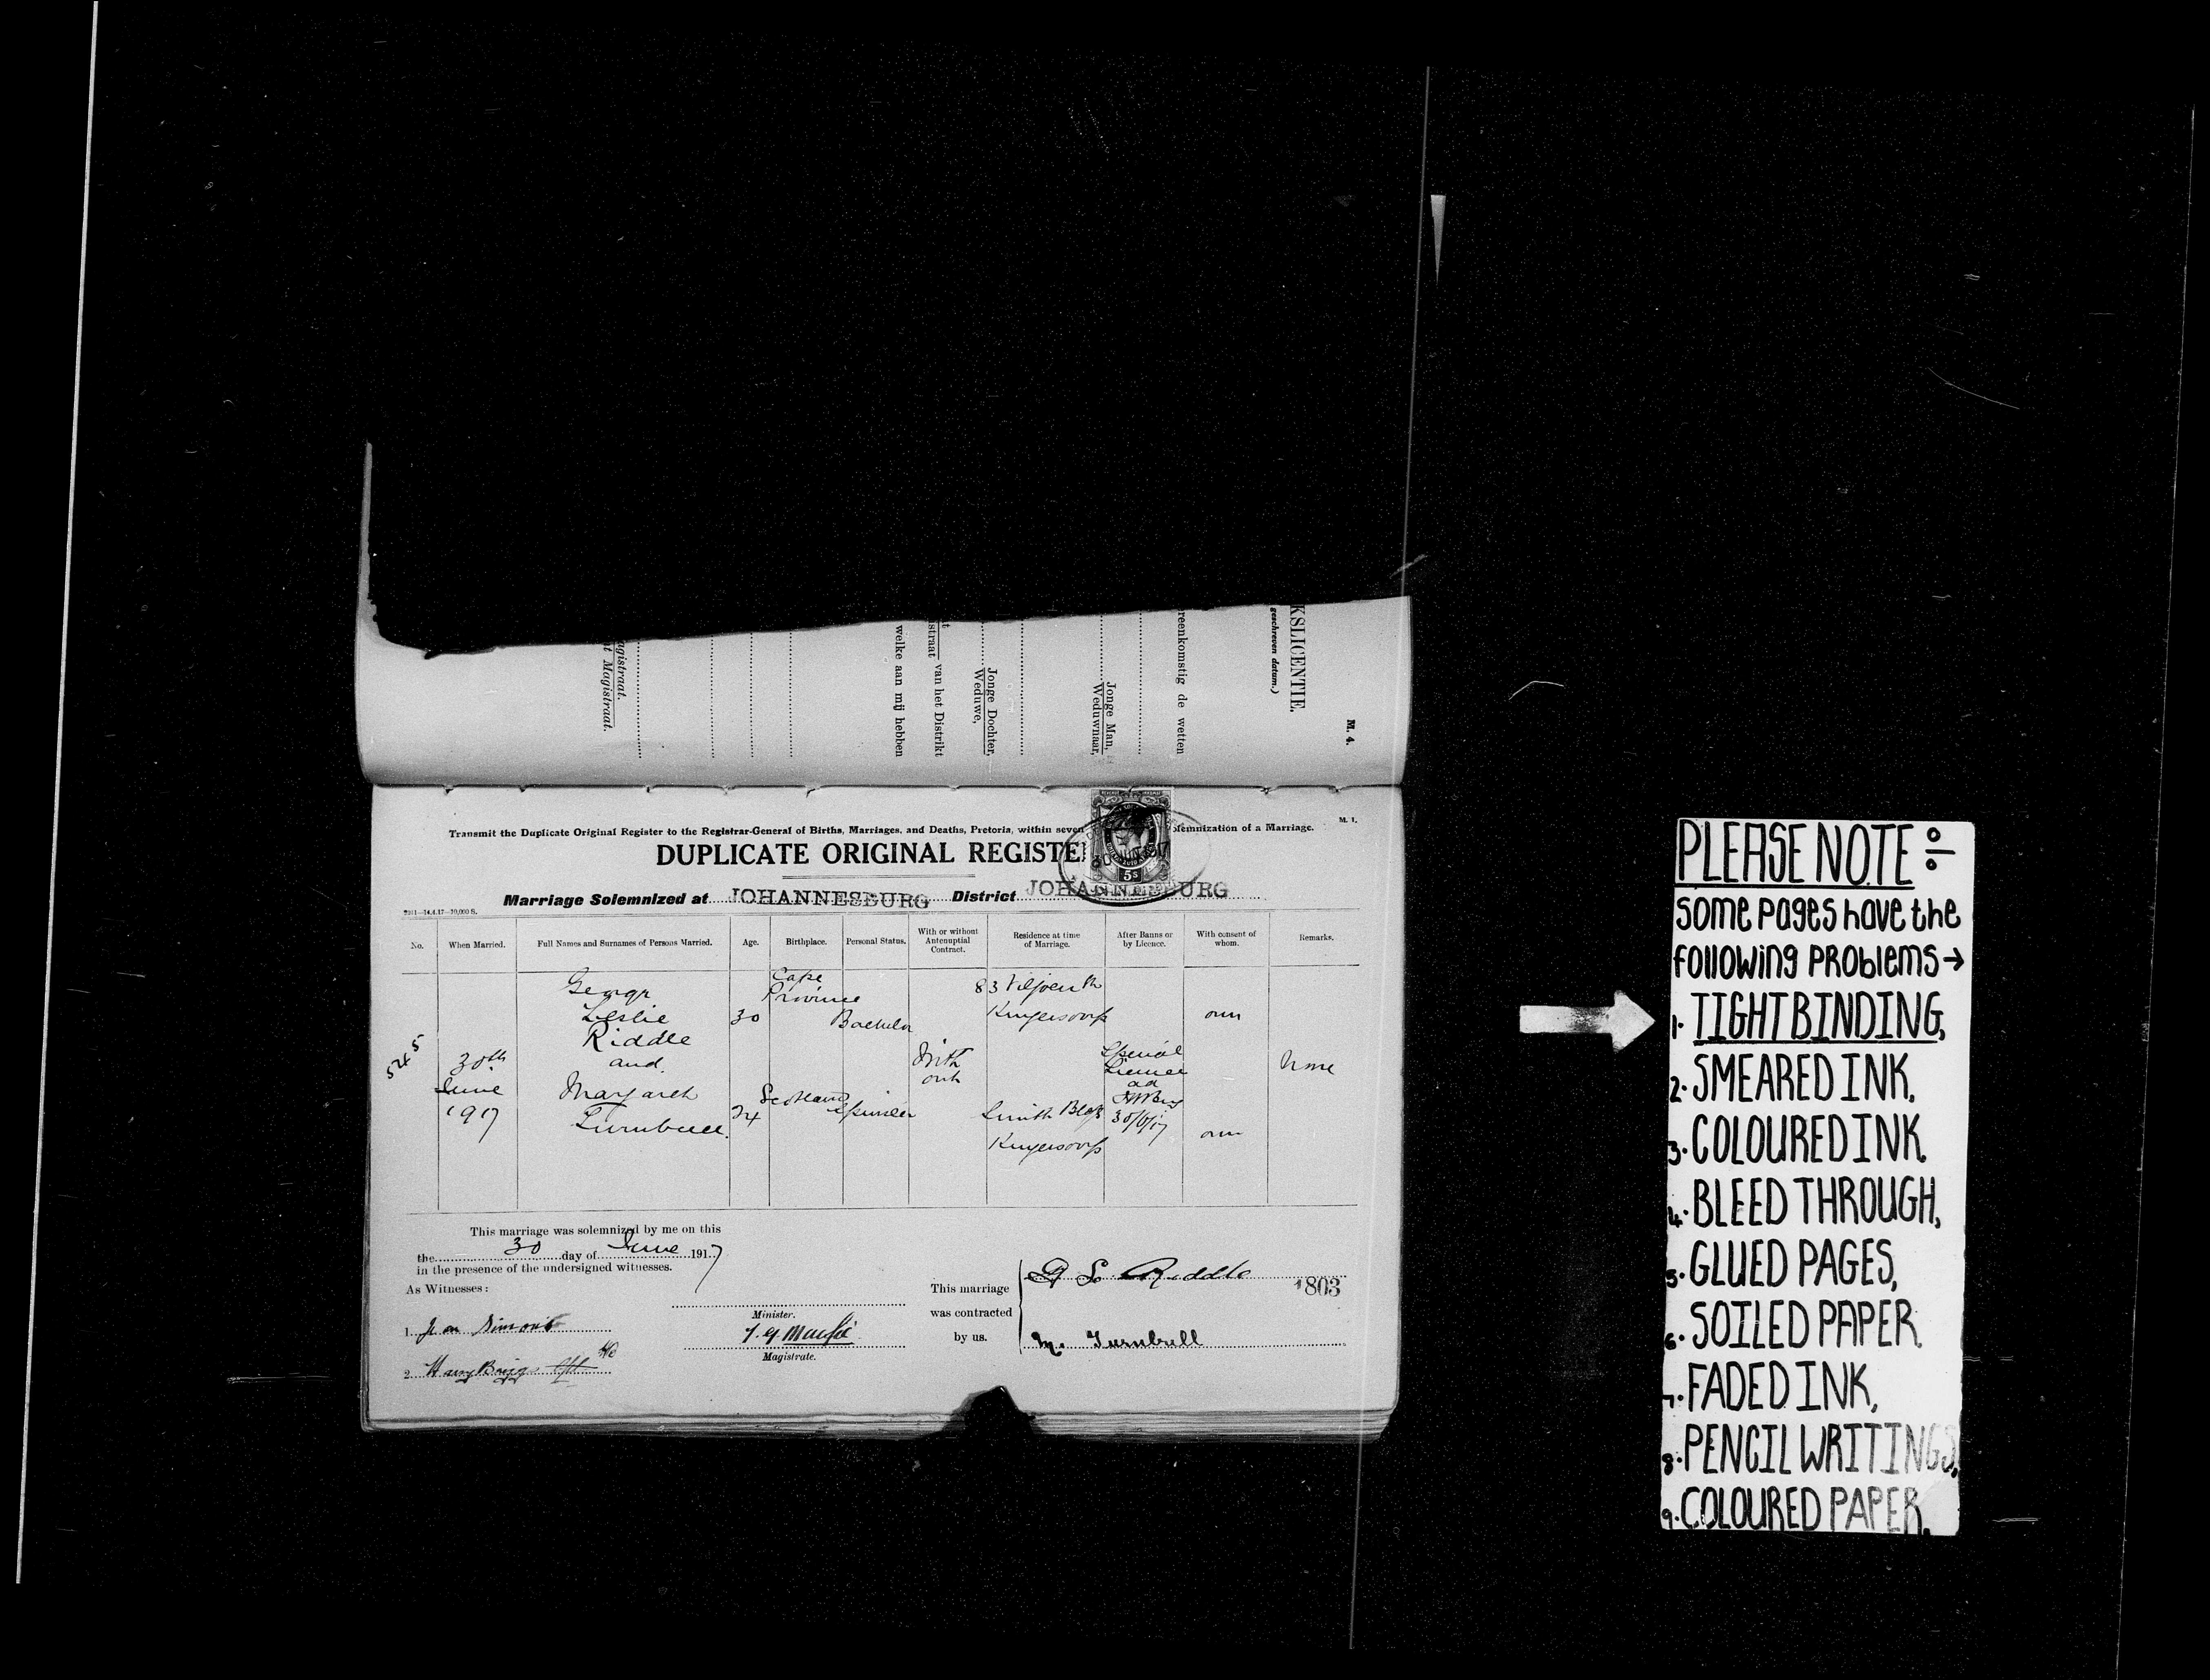 KSLICENTIE.
geschreven datum.)
M. 4.
reenkomstig de wetten
Jonge Man,
Weduwnaar,
Jonge Dochter,
Weduwe,
istraat van het Distrikt
welke aan mij hebben
agistraat.
t Magistraat.
M. 1.
Transmit the Duplicate Original Register to the Registrar-General of Births, Marriages, and Deaths, Pretoria, within seven olemnization of a Marriage.
DUPLICATE ORIGINAL REGISTE
5s
Marriage Solemnized at JOHANNESBURG District JOHANNESBURG
No. When Married. Full Names and Surnames of Persons Married. Age. Birthplace. Personal Status. With or without Antenuptial Contract. Residence at time of Marriage. After Banns or by Licence. With consent of whom. Remarks.
545
30th
June
1917
George
Leslie
Riddle
and
Margaret
Turnbull.
30
24
Cape
Province
Scotland
Bachelor
Spinster
With
out
83
Krugersdorp
Smith
Krugersdorp
Special
Licence
30/6/17
own
own
None
This marriage was solemnized by me on this
the 30 day of June 1917
in the presence of the undersigned witnesses.
As Witnesses:
1.
2. Harry Briggs
Minister.
Magistrate.
This marriage
was contracted
by us.
G L Riddle
M. Turnbull
1803
PLEASE NOTE :
SOME PAGES HAVE THE
FOLLOWING PROBLEMS →
1. TIGHT BINDING,
2. SMEARED INK,
3. COLOURED INK,
4. BLEED THROUGH,
5. GLUED PAGES,
6. SOILED PAPER,
7. FADED INK,
8. PENCIL WRITINGS,
9. COLOURED PAPER.